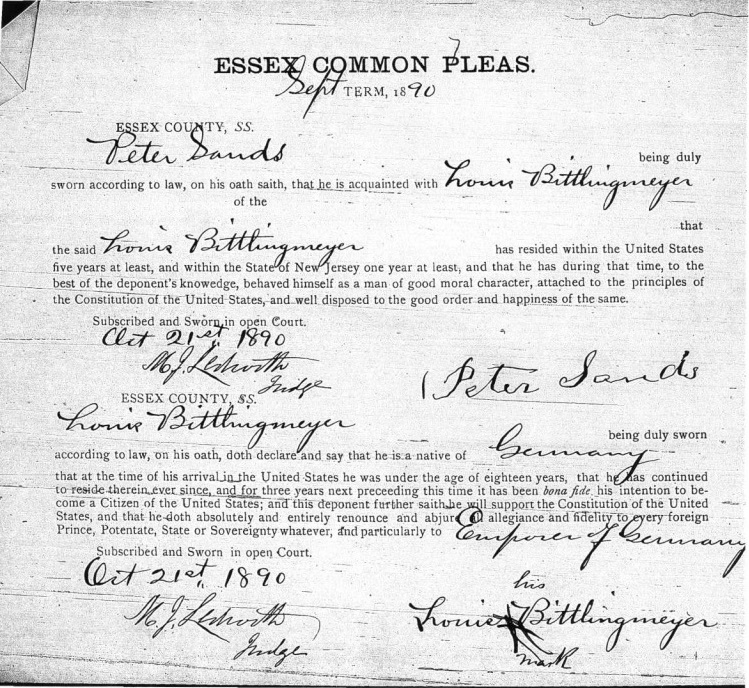 ESSEX COMMON PLEAS.
Sept TERM, 1890
ESSEX COUNTY, SS.
Peter Sands being duly
sworn according to law, on his oath saith, that he is acquainted with Louis Bittlingmeyer
of the
that
the said Louis Bittlingmeyer has resided within the United States
five years at least, and within the State of New Jersey one year at least, and that he has during that time, to the
best of the deponent's knowledge, behaved himself as a man of good moral character, attached to the principles of
the Constitution of the United States, and well disposed to the good order and happiness of the same.
Subscribed and Sworn in open Court.
Oct 21st, 1890
M. J. Ledwith
Judge
Peter Sands
ESSEX COUNTY, SS.
Louis Bittlingmeyer being duly sworn
according to law, on his oath, doth declare and say that he is a native of Germany
that at the time of his arrival in the United States he was under the age of eighteen years, that he has continued
to reside therein ever since, and for three years next preceeding this time it has been bona fide his intention to be-
come a Citizen of the United States; and this deponent further saith, he will support the Constitution of the United
States, and that he doth absolutely and entirely renounce and abjure all allegiance and fidelity to every foreign
Prince, Potentate, State or Sovereignty whatever, and particularly to Emporer of Germany
Subscribed and Sworn in open Court.
Oct 21st, 1890
M. J. Ledwith
Judge
his
Louis X Bittlingmeyer
mark